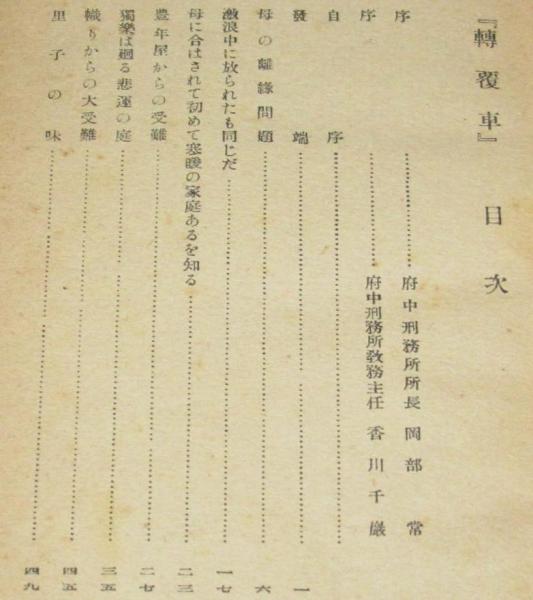 『轉覆車』目次
序……府中刑務所所長 岡部常
序……府中刑務所敎務主任 香川千巖
自序……
發端……一
母の離緣問題……六
激浪中に放られたも同じだ……一七
母に合はされて初めて寒暖の家庭あるを知る……二三
豊年屋からの受難……二七
獨樂は廻る悲運の庭……三五
幟りからの大受難……四五
里子の味……四九